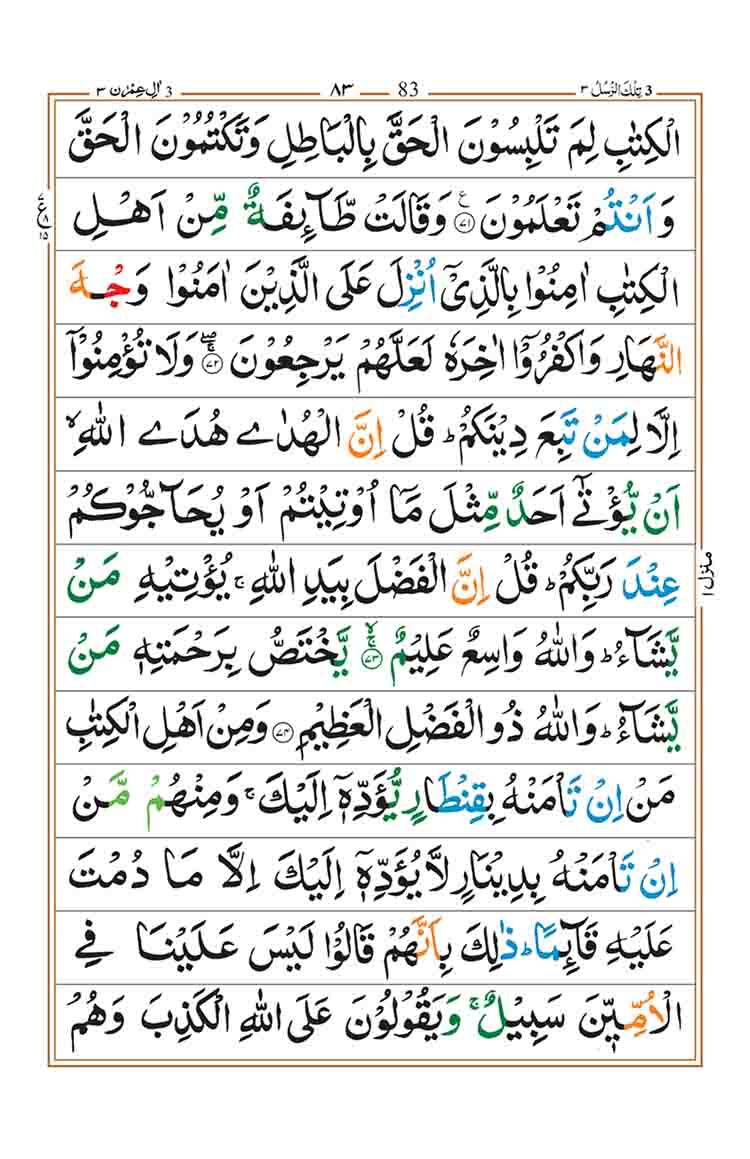 3 تِلْكَ الرُّسُلُ ٣
83 ٨٣
3 اٰلِ عِمْرٰن ٣
الْكِتٰبِ لِمَ تَلْبِسُوْنَ الْحَقَّ بِالْبَاطِلِ وَتَكْتُمُوْنَ الْحَقَّ
وَاَنْتُمْ تَعْلَمُوْنَ ﴿٧١﴾ ع وَقَالَتْ طَّآئِفَةٌ مِّنْ اَهْلِ
٧ ع ٨ ١٥
الْكِتٰبِ اٰمِنُوْا بِالَّذِيْٓ اُنْزِلَ عَلَى الَّذِيْنَ اٰمَنُوْا وَجْهَ
النَّهَارِ وَاكْفُرُوْٓا اٰخِرَهٗ لَعَلَّهُمْ يَرْجِعُوْنَ ﴿٧٢﴾ وَلَا تُؤْمِنُوْٓا
اِلَّا لِمَنْ تَبِعَ دِيْنَكُمْ ؕ قُلْ اِنَّ الْهُدٰى هُدَى اللّٰهِ ۙ
اَنْ يُّؤْتٰٓى اَحَدٌ مِّثْلَ مَاۤ اُوْتِيْتُمْ اَوْ يُحَآجُّوْكُمْ
عِنْدَ رَبِّكُمْ ؕ قُلْ اِنَّ الْفَضْلَ بِيَدِ اللّٰهِ ۚ يُؤْتِيْهِ مَنْ
منزل ١
يَّشَآءُ ؕ وَاللّٰهُ وَاسِعٌ عَلِيْمٌ ﴿٧٣﴾ ۙۚ يَّخْتَصُّ بِرَحْمَتِهٖ مَنْ
يَّشَآءُ ؕ وَاللّٰهُ ذُو الْفَضْلِ الْعَظِيْمِ ﴿٧٤﴾ وَمِنْ اَهْلِ الْكِتٰبِ
مَنْ اِنْ تَاْمَنْهُ بِقِنْطَارٍ يُّؤَدِّهٖٓ اِلَيْكَ ۚ وَمِنْهُمْ مَّنْ
اِنْ تَاْمَنْهُ بِدِيْنَارٍ لَّا يُؤَدِّهٖٓ اِلَيْكَ اِلَّا مَا دُمْتَ
عَلَيْهِ قَآئِمًا ؕ ذٰلِكَ بِاَنَّهُمْ قَالُوْا لَيْسَ عَلَيْنَا فِي
الْاُمِّيّٖنَ سَبِيْلٌ ۚ وَيَقُوْلُوْنَ عَلَى اللّٰهِ الْكَذِبَ وَهُمْ